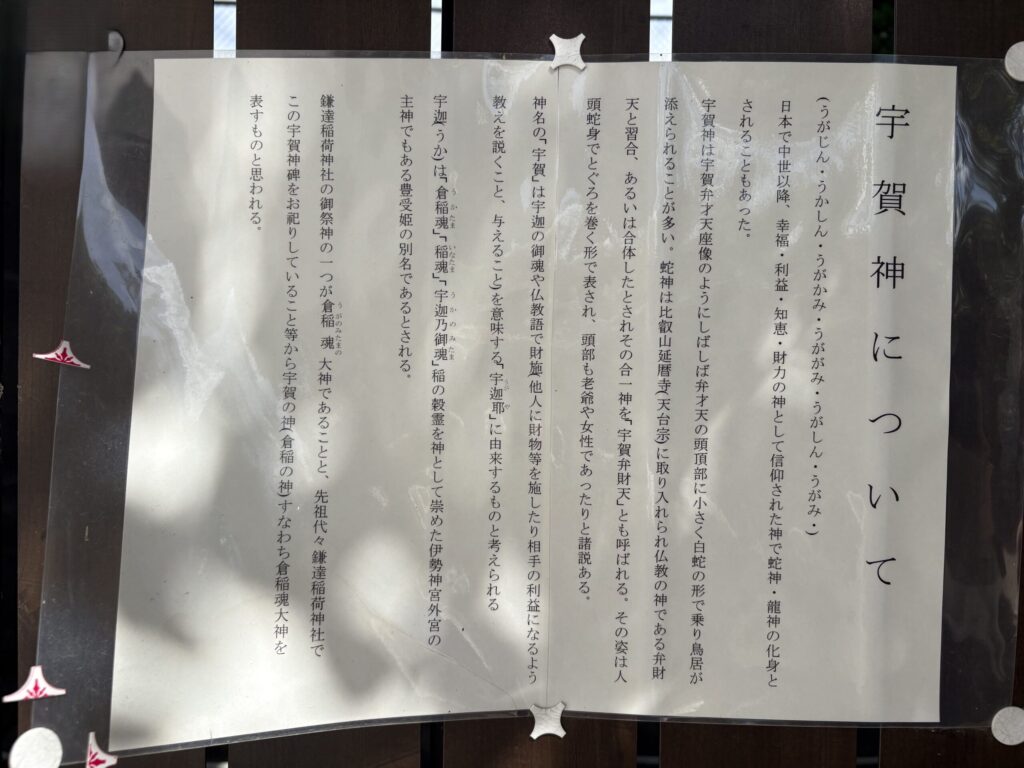 宇賀神について
(うがじん・うかしん・うがかみ・うががみ・うがしん・うがみ・)
日本で中世以降、幸福・利益・知恵・財力の神として信仰された神で蛇神・龍神の化身と
されることもあった。
宇賀神は宇賀弁才天座像のようにしばしば弁才天の頭頂部に小さく白蛇の形で乗り鳥居が
添えられることが多い。蛇神は比叡山延暦寺(天台宗)に取り入れられ仏教の神である弁財
天と習合、あるいは合体したとされその合一神を「宇賀弁財天」とも呼ばれる。その姿は人
頭蛇身でとぐろを巻く形で表され、頭部も老爺や女性であったりと諸説ある。
神名の「宇賀」は宇迦の御魂や仏教語で財施(他人に財物等を施したり相手の利益になるよう
教えを説くこと、与えること)を意味する「宇迦耶」に由来するものと考えられる
宇迦(うか)は「倉稲魂」「稲魂」「宇迦乃御魂」稲の穀霊を神として崇めた伊勢神宮外宮の
主神でもある豊受姫の別名であるとされる。
鎌達稲荷神社の御祭神の一つが倉稲魂大神であることと、先祖代々鎌達稲荷神社で
この宇賀神碑をお祀りしていること等から宇賀の神(倉稲の神)すなわち倉稲魂大神を
表すものと思われる。